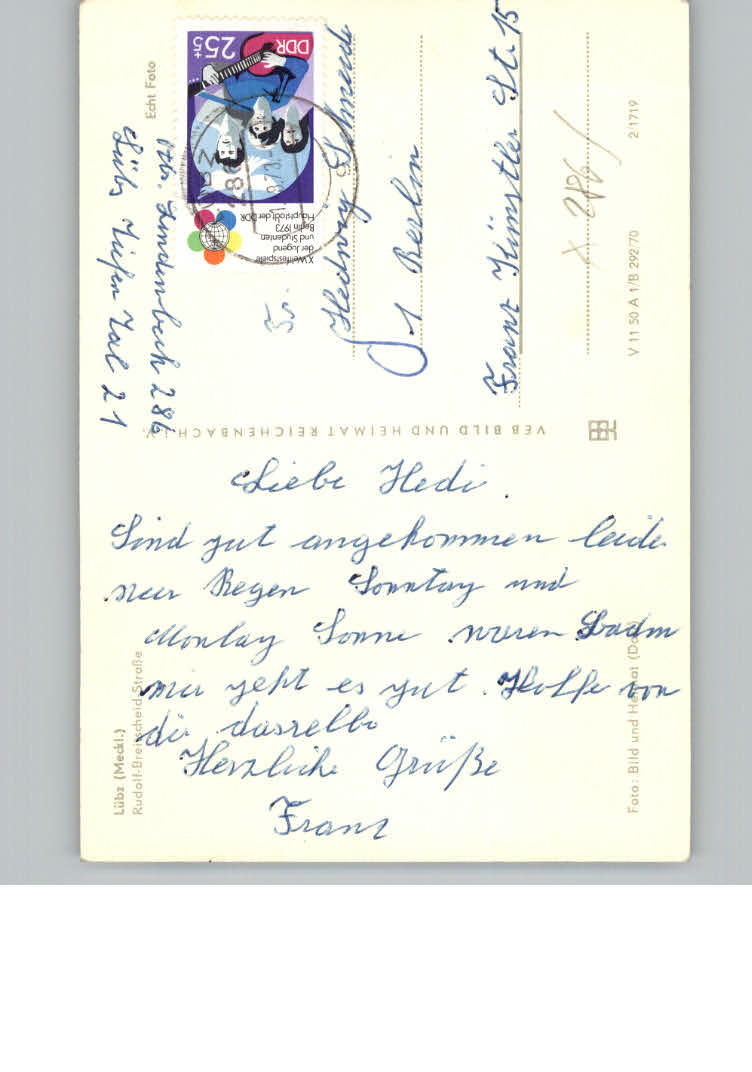 Liebe Hedi.
Sind gut angekommen leider
nur Regen Sonntag und
Montag Sonne waren Baden
mir geht es gut. Hoffe von
dir dasselbe
Herzliche Grüße
Franz
Lübz (Meckl.)
Rudolf-Breitscheid-Straße
Foto: Bild und Heimat
VEB BILD UND HEIMAT REICHENBACH i. V.
Echt Foto
Abs. Lindenbach 286
Lübz Tiefen Tal 21
DDR
25+5
X. Weltfestspiele
der Jugend
und Studenten
Berlin 1973
Hauptstadt der DDR
LÜBZ
286
Fr.
Hedwig
1 Berlin
Franz Künstler Str. 15
X 286
V 11 50 A 1/B 292/70
2/1719